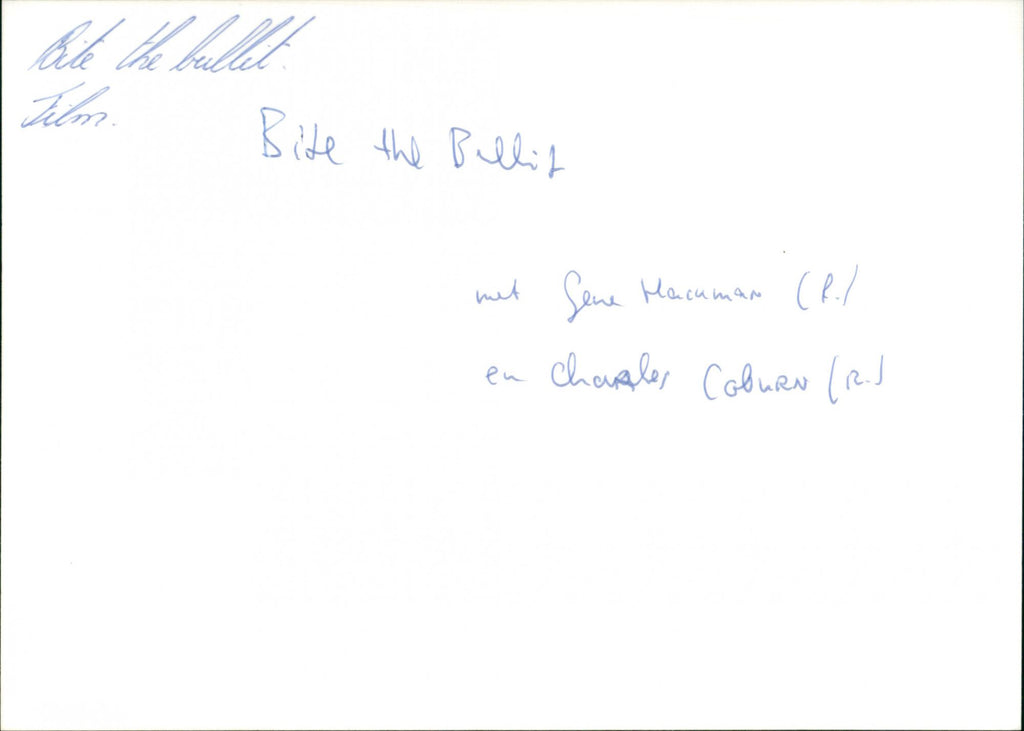 Bite the bullit.
Film.
Bite the Bullit
met Gene Hackman (R.)
en Charles Coburn (R.)